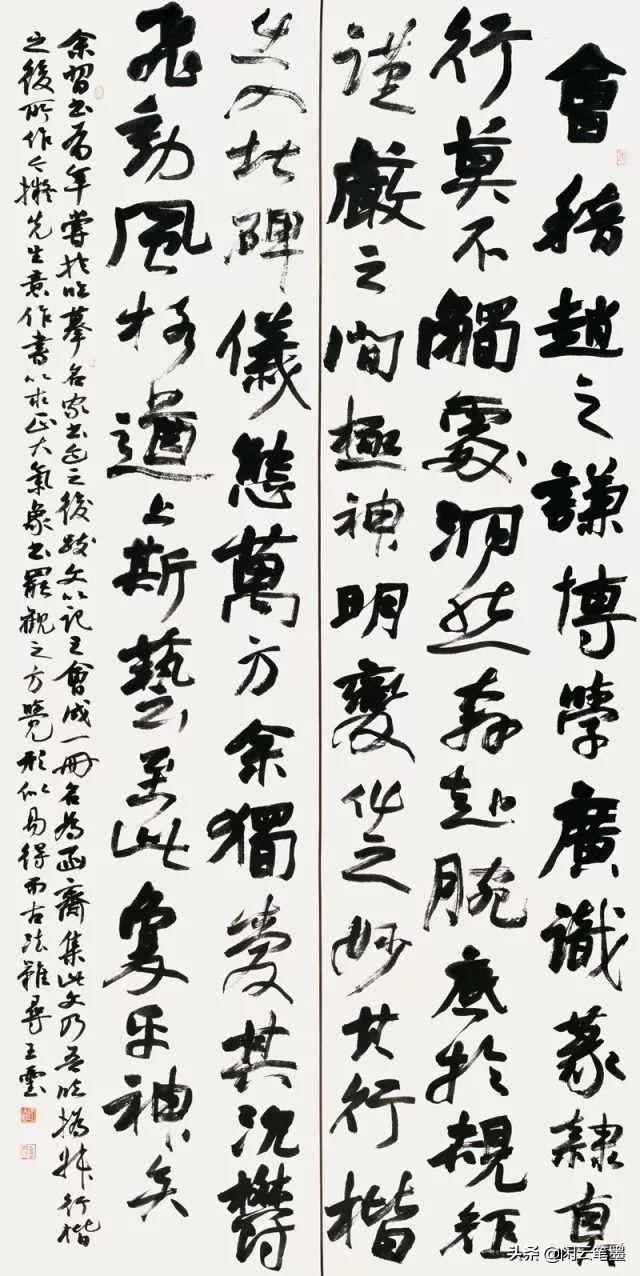 會稽趙之謙博學廣識篆隸真
行莫不觸處洞然奔赴腕底於規矩
謹嚴之間極神明變化之妙其行楷
出入北碑儀態萬方余獨愛其沉鬱
飛動風格遒上斯藝至此乎神矣
余習書有年嘗於臨摹名家書迹之後跋文以記之會成一冊名為函齋集此文乃吾臨撝叔行楷
之後所作今擬先生意作書以求正大氣象書罷觀之方覺形似易得而古法難尋王雲
头条 @闲云笔墨